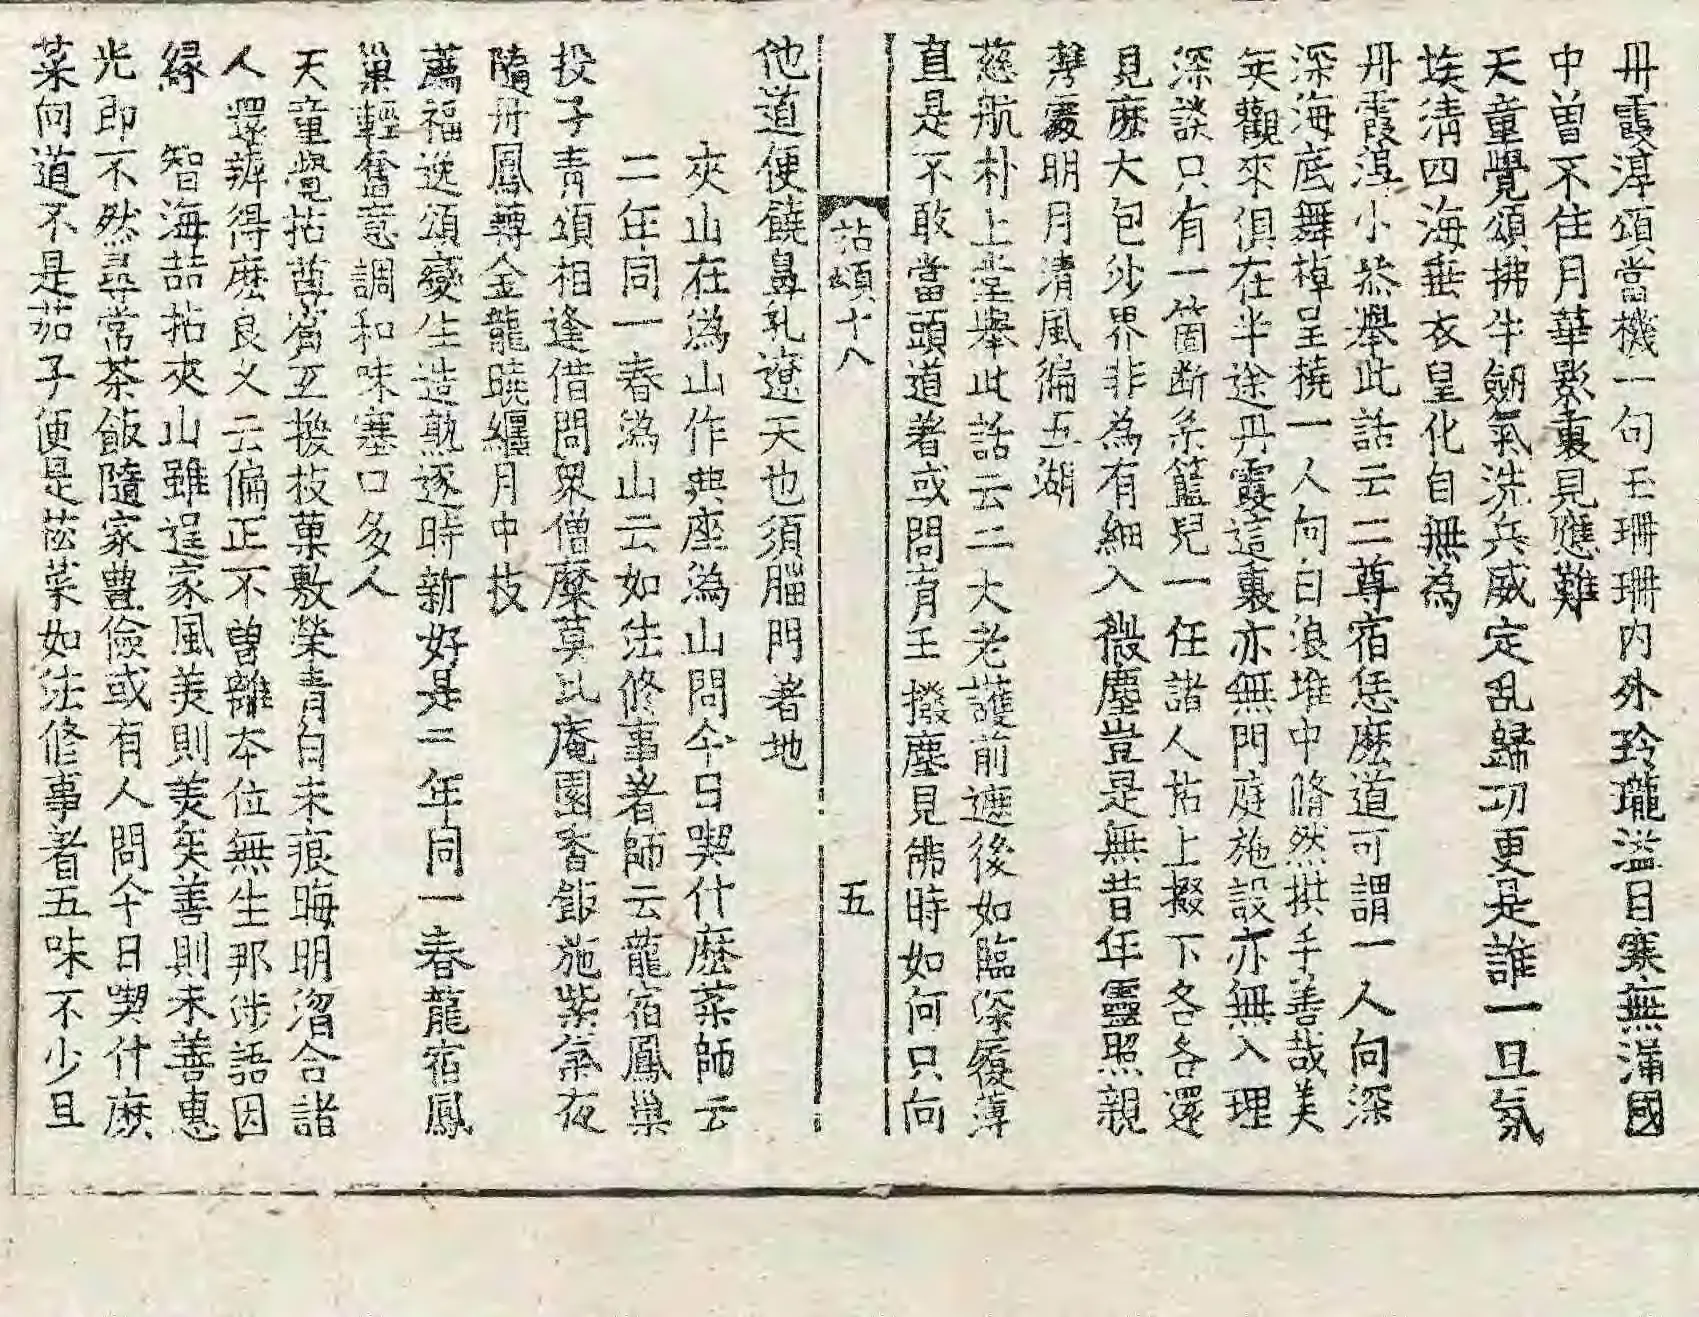 丹霞淳頌當機一句玉珊珊內外玲瓏溢目寒無漏國
中曾不住月華影裏見應難
天童覺頌拂牛劒氣洗兵威定乱歸功更是誰一旦氛
埃清四海垂衣皇化自無為
丹霞淳小叅擧此話云二尊宿恁麽道可謂一人向深
深海底舞棹呈橈一人向白浪堆中脩然拱手善哉美
矣觀來俱在半途丹霞這裏亦無門庭施設亦無入理
深談只有一箇断糸籃兒一任諸人拈上掇下各各還
見麽大包沙界非為有細入微塵豈是無昔年靈照親
擕處明月清風徧五湖
慈航朴上堂擧此話云二大老護前遮後如臨深履薄
直是不敢當頭道著或問育王撥塵見佛時如何只向
拈頌十八 五
他道便饒鼻孔遼天也須腦門著地
夾山在溈山作典座溈山問今日喫什麽菜師云
二年同一春溈山云如法修事著師云龍宿鳳巢
投子青頌相逢借問衆僧糜莫比庵園香飯施紫氣夜
隨丹鳳轉金龍曉纏月中技
薦福逸頌變生造熟逐時新好是二年同一春龍宿鳳
巢輕奮意調和味塞口多人
天童覺拈尊賓互換枝菓敷榮青白未痕晦明溜合諸
人還辨得麽良久云偏正不曾離本位無生那涉語因
緣 智海喆拈夾山雖逞家風美則美矣善則未善惠
光即不然尋常茶飯隨家豊儉或有人問今日喫什麽
菜向道不是茄子便是菘菜如法修事者五味不少且